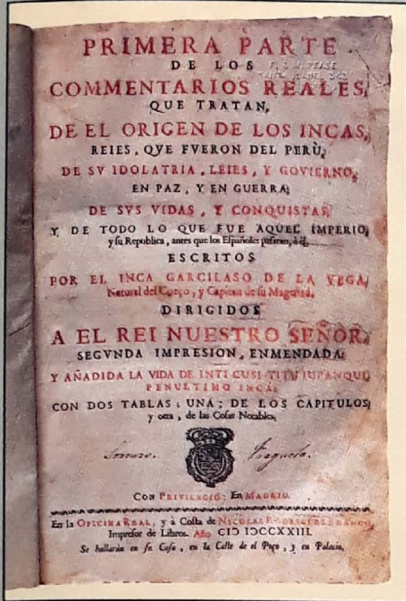 PRIMERA PARTE
DE LOS
COMMENTARIOS REALES,
QUE TRATAN,
DE EL ORIGEN DE LOS INCAS,
REIES, QVE FVERON DEL PERÙ,
DE SV IDOLATRIA, LEIES, Y GOVIERNO,
EN PAZ, Y EN GUERRA;
DE SVS VIDAS, Y CONQUISTAS;
Y DE TODO LO QUE FUE AQUEL IMPERIO,
y su Republica, antes que los Españoles pasaran, à él.
ESCRITOS
POR EL INCA GARCILASO DE LA VEGA,
Natural del Cozco, y Capitan de su Magestad.
DIRIGIDOS
A EL REI NUESTRO SEÑOR.
SEGVNDA IMPRESION, ENMENDADA:
Y AÑADIDA LA VIDA DE INTI CUSI TITU IUPANQUI,
PENULTIMO INCA;
CON DOS TABLAS; UNA; DE LOS CAPITULOS;
y otra, de las Cosas Notables.
CON PRIVILEGIO: EN MADRID.
En la OFICINA REAL, y à Costa de NICOLAS RODRIGUEZ FRANCO,
Impresor de Libros. Año CIƆ IƆCCXXIII.
Se hallaràn en su Casa, en la Calle de el Poço, y en Palacio.